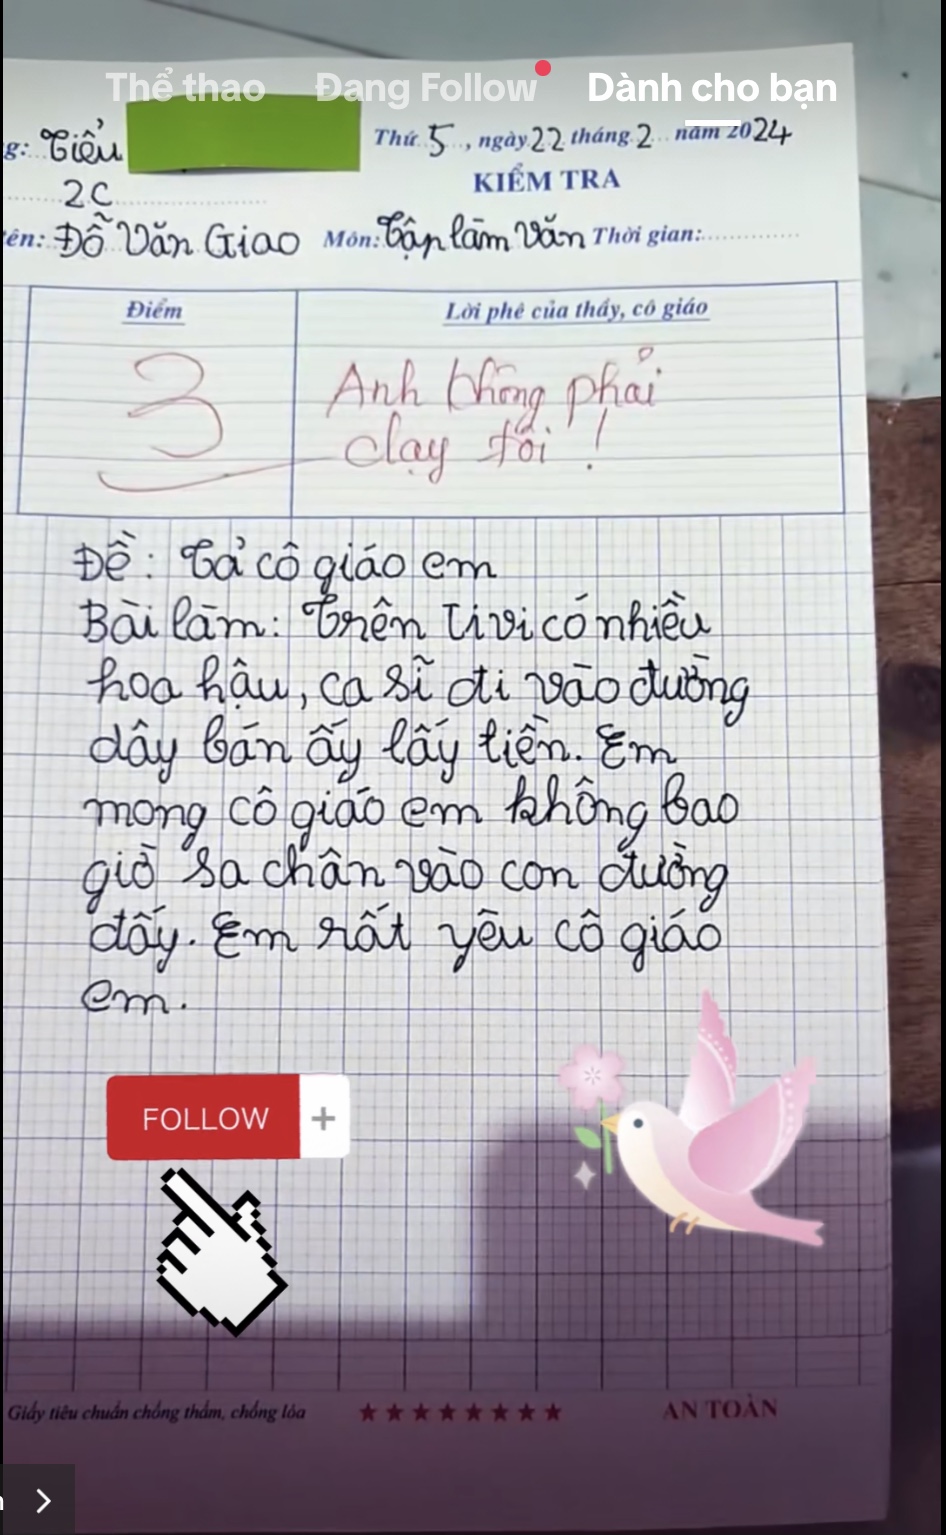 Thể thao Đang Follow Dành cho bạn
g: Tiểu
Thứ 5, ngày 22 tháng 2 năm 2024
2C
KIỂM TRA
ên: Đỗ Văn Giao Môn: Tập làm văn Thời gian:
Điểm
Lời phê của thầy, cô giáo
3
Anh không phải
dạy tôi !
Đề: Tả cô giáo em
Bài làm: Trên Tivi có nhiều
hoa hậu, ca sĩ đi vào đường
dây bán ấy lấy tiền. Em
mong cô giáo em không bao
giờ sa chân vào con đường
đấy. Em rất yêu cô giáo
em.
FOLLOW +
Giấy tiêu chuẩn chống thấm, chống lóa
AN TOÀN